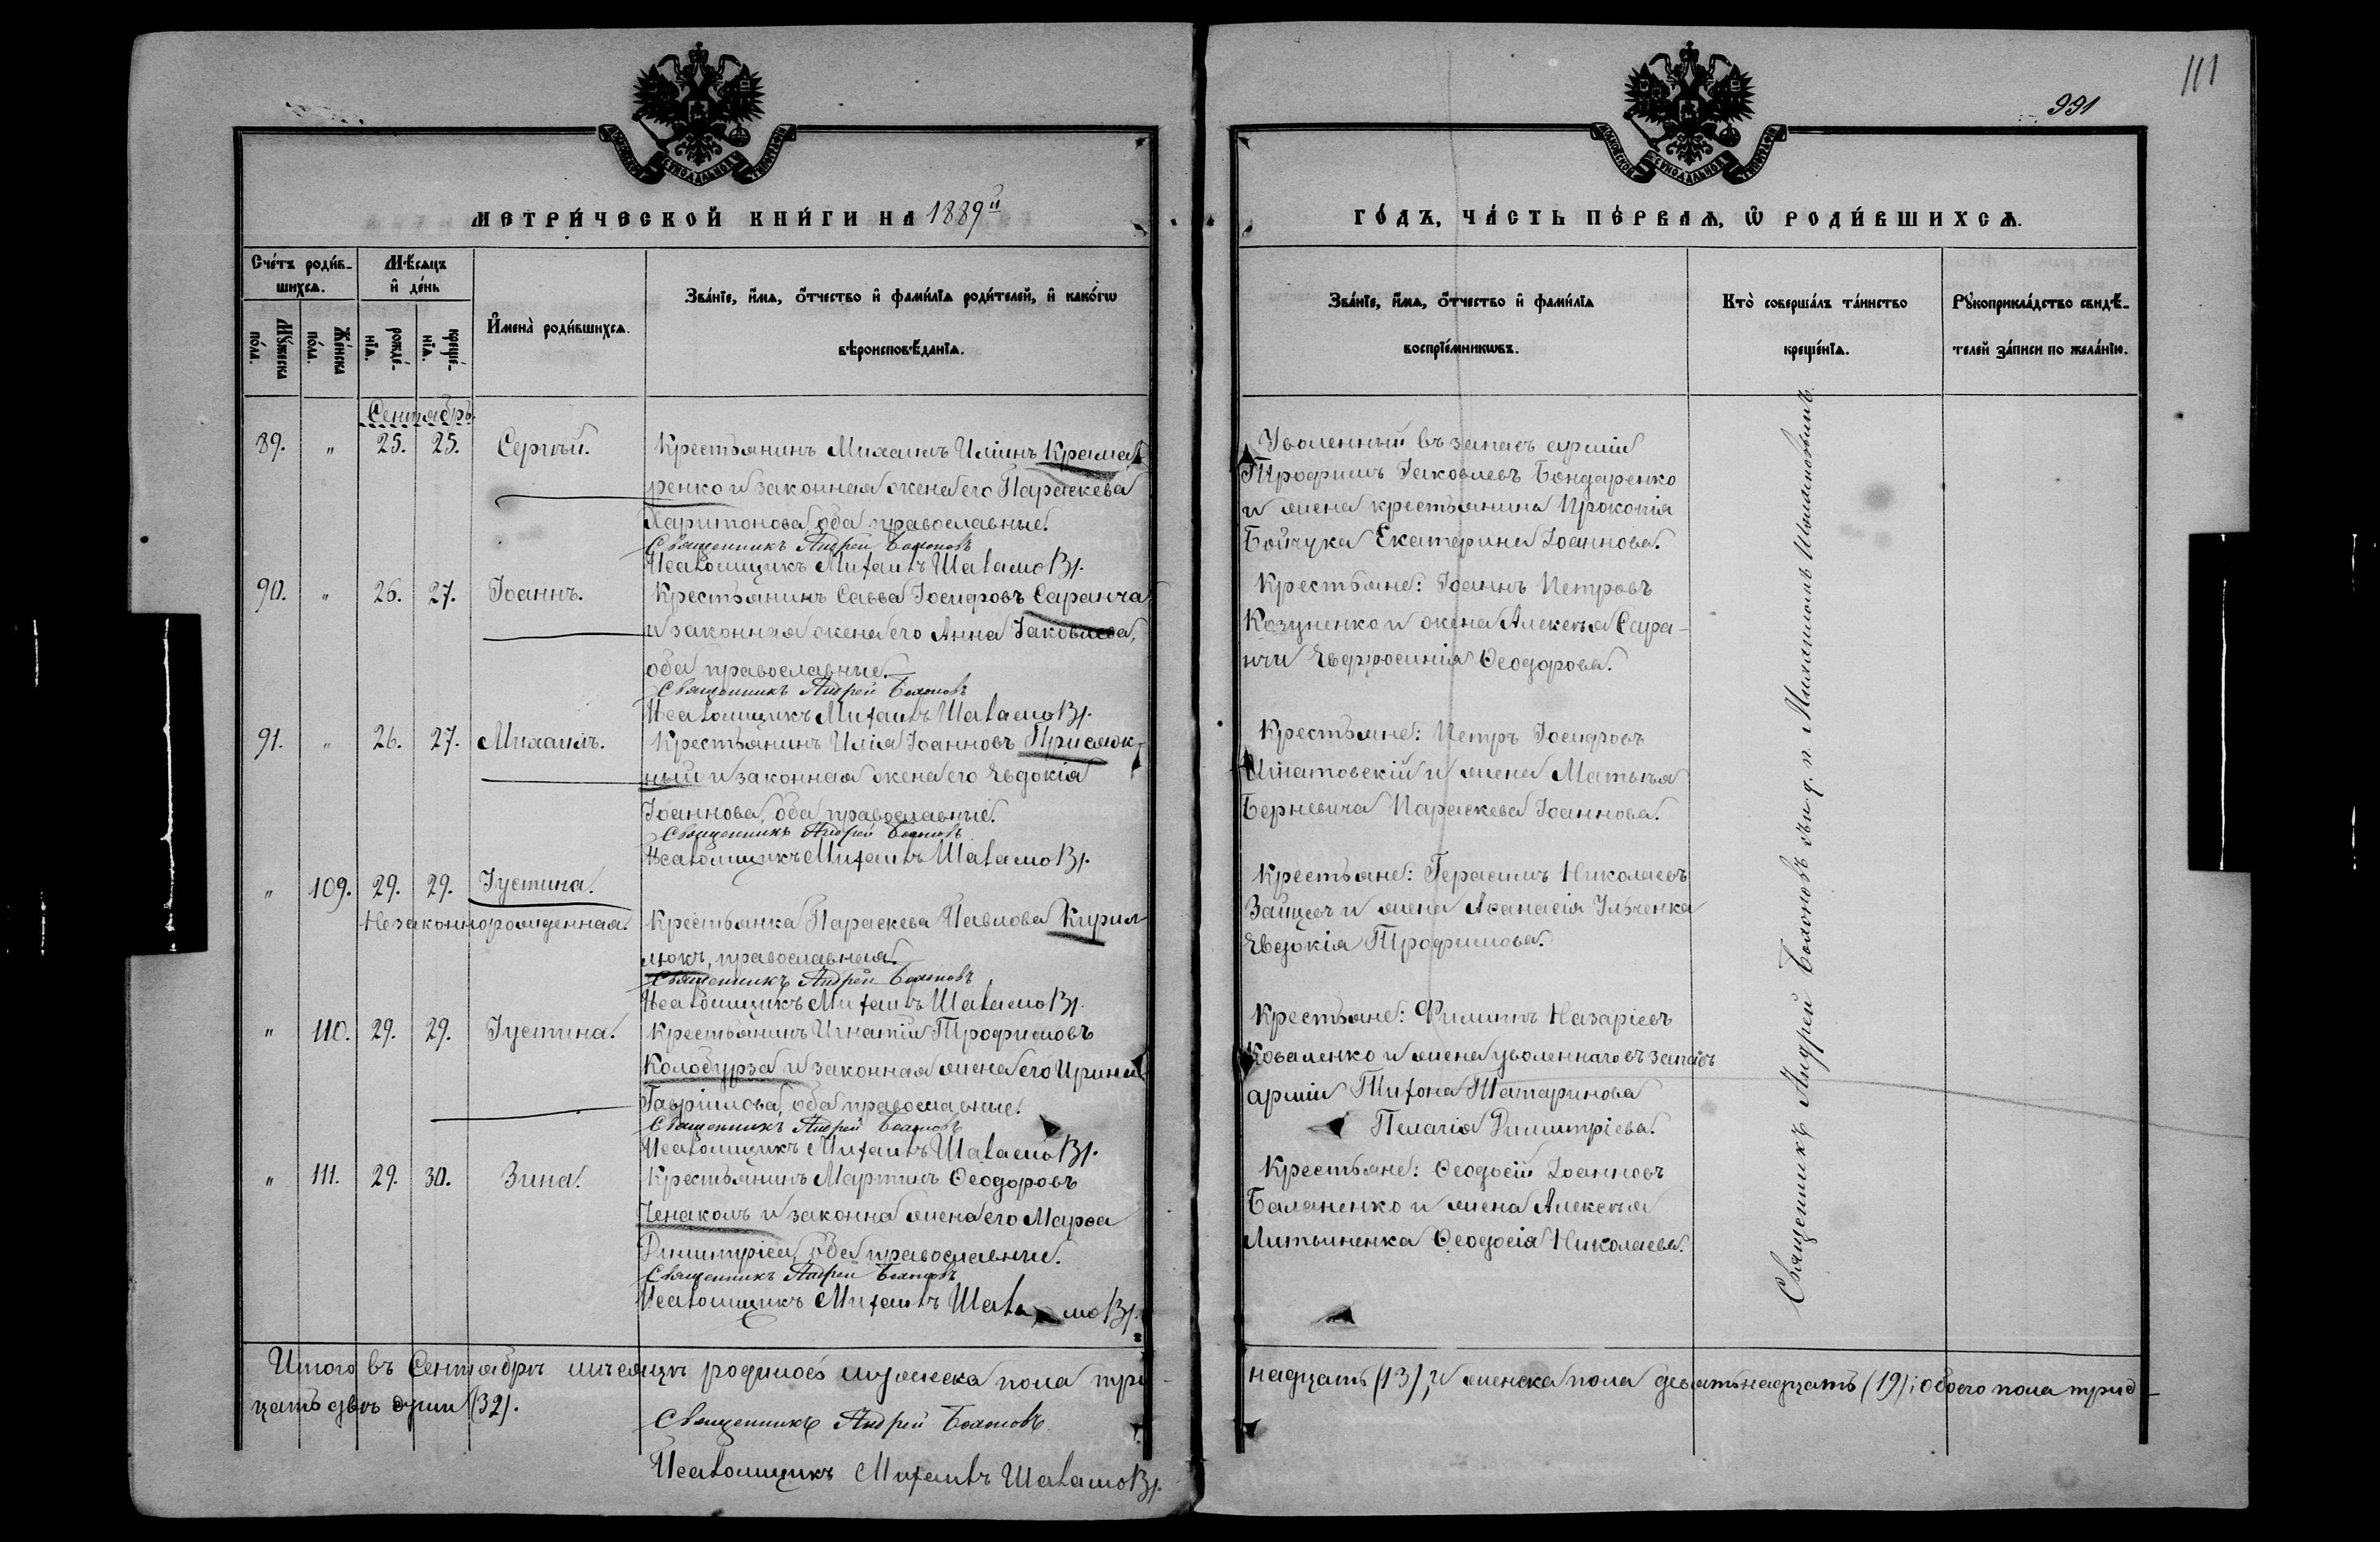 111
991
МЕТРИ́ЧЕСКОЙ КНИ́ГИ НА 1889й
ГО́ДЪ, ЧА́СТЬ ПЕ́РВАЯ, Ѡ РОДИ́ВШИХСЯ.
Сче́тъ роди́в-
шихся.
Мѣ́сяцъ
и де́нь
Му́жеска
по́ла.
Же́нска
по́ла.
рожде́-
нія.
креще́-
нія.
Имена̀ роди́вшихся.
Зва́ніе, и́мя, о́тчество и фами́лія роди́телей, и како́гѡ
вѣроисповѣ́данія.
Зва́ніе, и́мя, о́тчество и фами́лія
воспріе́мникѡвъ.
Кто̀ соверша́лъ та́инство
креще́нія.
Рꙋкоприкла́дство свидѣ́-
телей за́писи по жела́нію.
Сентябрь.
89. „ 25. 25. Сергѣй. Крестьянинъ Михаилъ Иліинъ Крама-
ренко и законная жена его Параскева
Харитонова, оба православные.
Священникъ Андрей
Псаломщикъ Михаилъ
Уволенный въ запасъ арміи
Трофимъ Іаковлевъ Бондаренко
и жена крестьянина Прокопія
Бойчука Екатерина Іоаннова.
90. „ 26. 27. Іоаннъ. Крестьянинъ Савва Іосифовъ Саранча
и законная жена его Анна Іаковлева,
оба православные.
Священникъ Андрей
Псаломщикъ Михаилъ
Крестьяне: Іоаннъ Петровъ
Козуненко и жена Алексѣя Сара-
нчи Евфросинія Ѳеодорова.
91. „ 26. 27. Михаилъ. Крестьянинъ Илія Іоанновъ Присяж-
ный и законная жена его Евдокія
Іоаннова, оба православные.
Священникъ Андрей
Псаломщикъ Михаилъ
Крестьяне: Петръ Іосифовъ
Игнатовскій и жена Матѳѣя
Берневича Параскева Іоаннова.
„ 109. 29. 29. Іустина.
Незаконнорожденная. Крестьянка Параскева Павлова Кирил-
люкъ, православная.
Священникъ Андрей
Псаломщикъ Михаилъ
Крестьяне: Герасимъ Николаевъ
Зайцевъ и жена Аѳанасія Ильченка
Евдокія Трофимова.
„ 110. 29. 29. Іустина. Крестьянинъ Игнатій Трофимовъ
Колобурза и законная жена его Ирина
Гавріилова, оба православные.
Священникъ Андрей
Псаломщикъ Михаилъ
Крестьяне: Филиппъ Назаріевъ
Коваленко и жена уволеннаго въ запасъ
арміи Тихона Татаринова
Пелагія Димитріева.
„ 111. 29. 30. Зина. Крестьянинъ Мартинъ Ѳеодоровъ
Ченаколъ и законна жена его Марѳа
Димитріева, оба православные.
Священникъ Андрей
Псаломщикъ Михаилъ
Крестьяне: Ѳеодосій Іоанновъ
Баланенко и жена Алексѣя
Литвиненка Ѳеодосія Николаева.
Священникъ Андрей съ и. д. п. Михаиломъ
Итого въ Сентябрѣ мѣсяцѣ родилось мужеска пола три-
надцать (13), и женска пола девятьнадцать (19); обоего пола трид-
цать двѣ души (32).
Священникъ Андрей
Псаломщикъ Михаилъ